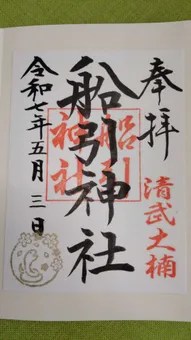 奉拝
清武大楠
船引神社
船引神社
令和七年五月三日